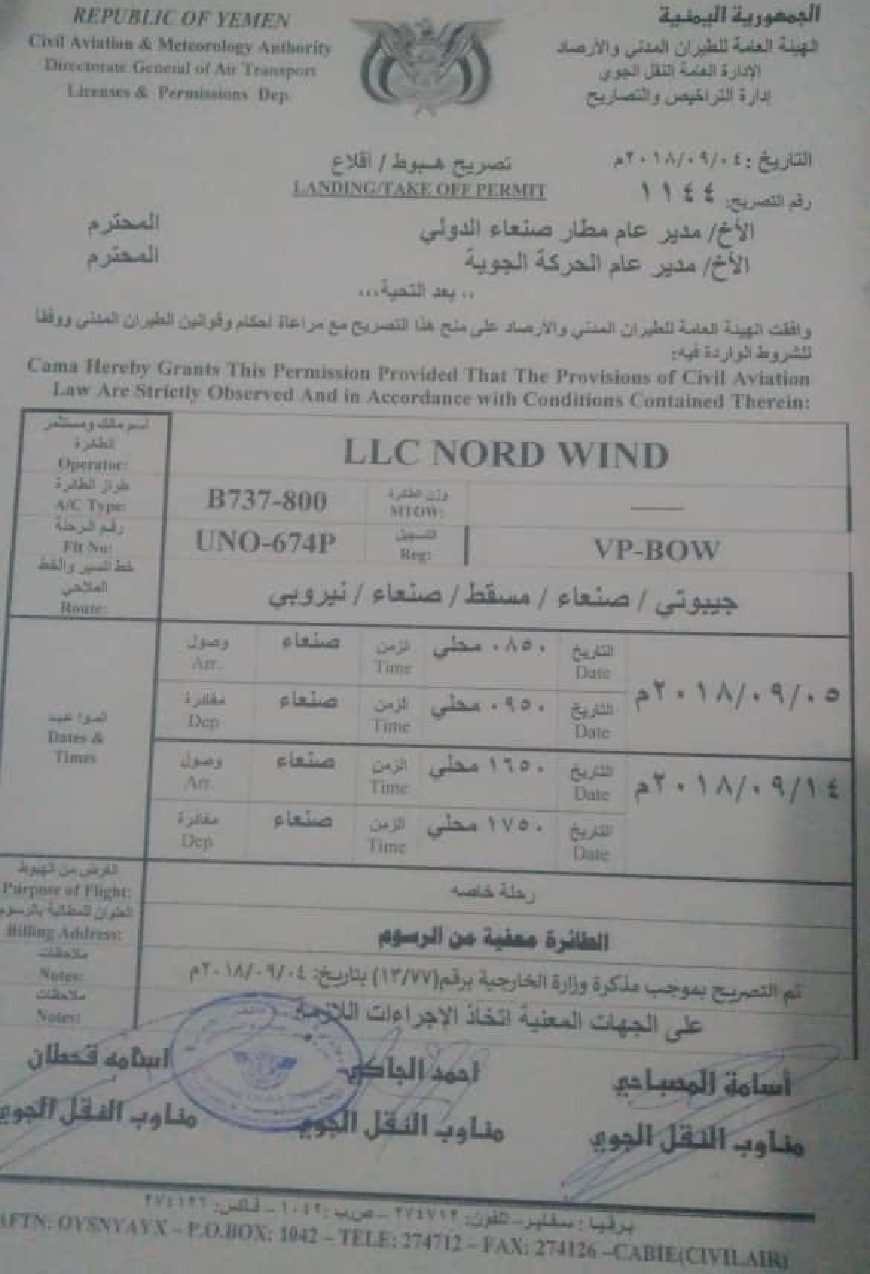 REPUBLIC OF YEMEN
Civil Aviation & Meteorology Authority
Directorate General of Air Transport
Licenses & Permissions Dep
الجمهورية اليمنية
الهيئة العامة للطيران المدني والأرصاد
الإدارة العامة النقل الجوي
إدارة التراخيص والتصاريح
التاريخ : ٢٠١٨/٠٩/٠٤م
رقم التصريح: ١١٤٤
تصريح هبوط / أقلاع
LANDING/TAKE OFF PERMIT
الأخ/ مدير عام مطار صنعاء الدولي المحترم
الأخ/ مدير عام الحركة الجوية المحترم
.. بعد التحية...
وافقت الهيئة العامة للطيران المدني والأرصاد على منح هذا التصريح مع مراعاة أحكام وقوانين الطيران المدني ووفقا
للشروط الواردة فيه:
Cama Hereby Grants This Permission Provided That The Provisions of Civil Aviation
Law Are Strictly Observed And in Accordance with Conditions Contained Therein:
اسم مالك ومستثمر
الطائرة
Operator:
LLC NORD WIND
طراز الطائرة
A/C Type:
B737-800
وزن الطائرة
MTOW:
رقم الرحلة
Flt No:
UNO-674P
التسجيل
Reg:
VP-BOW
خط السير والخط
الملاحي
Route:
جيبوتي / صنعاء / مسقط / صنعاء / نيروبي
المواعيد
Dates &
Times
وصول
Arr.
صنعاء
الزمن
Time
٠٨٥٠ محلي
التاريخ
Date
٢٠١٨/٠٩/٠٥م
مغادرة
Dep
صنعاء
الزمن
Time
٠٩٥٠ محلي
التاريخ
Date
وصول
Arr.
صنعاء
الزمن
Time
١٦٥٠ محلي
التاريخ
Date
٢٠١٨/٠٩/١٤م
مغادرة
Dep
صنعاء
الزمن
Time
١٧٥٠ محلي
التاريخ
Date
الغرض من الهبوط
Purpose of Flight:
رحلة خاصه
العنوان للمطالبة بالرسوم
Billing Address:
الطائرة معفية من الرسوم
ملاحظات
Notes:
تم التصريح بموجب مذكرة وزارة الخارجية برقم(١٣/٧٧) بتاريخ: ٢٠١٨/٠٩/٠٤م
ملاحظات
Notes:
على الجهات المعنية اتخاذ الاجراءات اللازمة
أسامة المصباحي
احمد الجاكي
اسامه قحطان
مناوب النقل الجوي
مناوب النقل الجوي
مناوب النقل الجوي
برقيا : سفلير – تلفون: ٢٧٤٧١٢ – ص.ب: ١٠٤٢ – فاكس: ٢٧٤١٢٦
AFTN: OYSNYAYX – P.O.BOX: 1042 – TELE: 274712 – FAX: 274126 –CABIE(CIVILAIR)